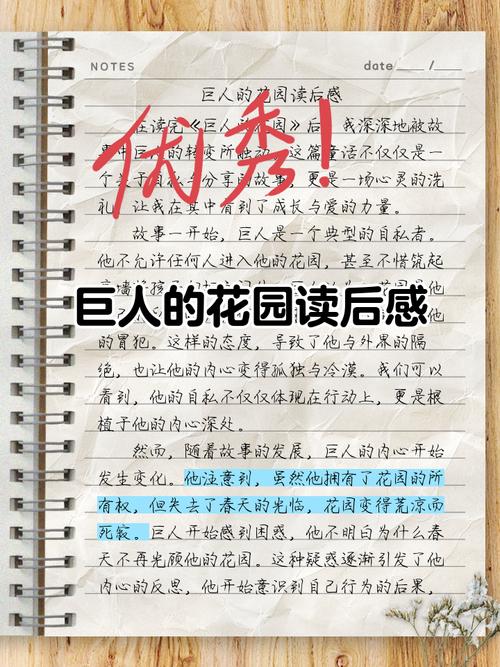 NOTES
date /
巨人的花园读后感
在读完《巨人的花园》后，我深深地被故
事中巨人的转变所触动。这篇童话不仅仅是一
个关于自私与分享的故事，更是一场心灵的洗
礼，让我在其中看到了成长与爱的力量。
优秀！
故事一开始，巨人是一个典型的自私者。
他不允许任何人进入他的花园，甚至不惜筑起
巨人的花园读后感
的冒犯。这样的态度，导致了他与外界的隔
绝，也让他的内心变得孤独与冷漠。我们可以
看到，他的自私不仅仅体现在行动上，更是根
植于他的内心深处。
然而，随着故事的发展，巨人的内心开始
发生变化。他注意到，虽然他拥有了花园的所
有权，但失去了春天的光临，花园变得荒凉而
死寂。巨人开始感到困惑，他不明白为什么春
天不再光顾他的花园。这种疑惑逐渐引发了他
内心的反思，他开始意识到自己行为的后果，